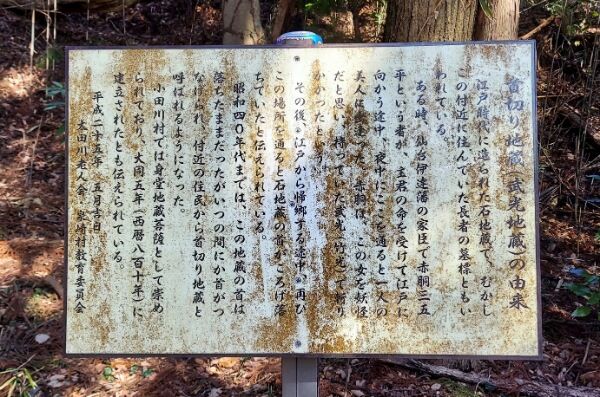 首切り地蔵(武光地蔵)の由来
江戸時代に造られた石地蔵で、むかし
この付近に住んでいた長者の墓標ともい
われている。
ある時、仙台伊達藩の家臣で赤胴三五
平という者が、主君の命を受けて江戸に
向かう途中、夜中にここを通ると一人の
美人に会った。赤胴は、この女を妖怪
だと思い、持っていた武光(竹光)で斬り
かかったという。
その後、江戸から帰郷する途中、再び
この場所を通ると石地蔵の首がころげ落
ちていたと伝えられている。
昭和四〇年代までは、この地蔵の首は
落ちたままだったがいつの間にか首がつ
なげられ、付近の住民から首切り地蔵と
呼ばれるようになった。
小田川村では身堂地蔵菩薩として崇め
られており、大同五年(西暦八百十年)に
建立されたとも伝えられている。
平成二十五年 五月吉日
太田川老人会・泉崎村教育委員会